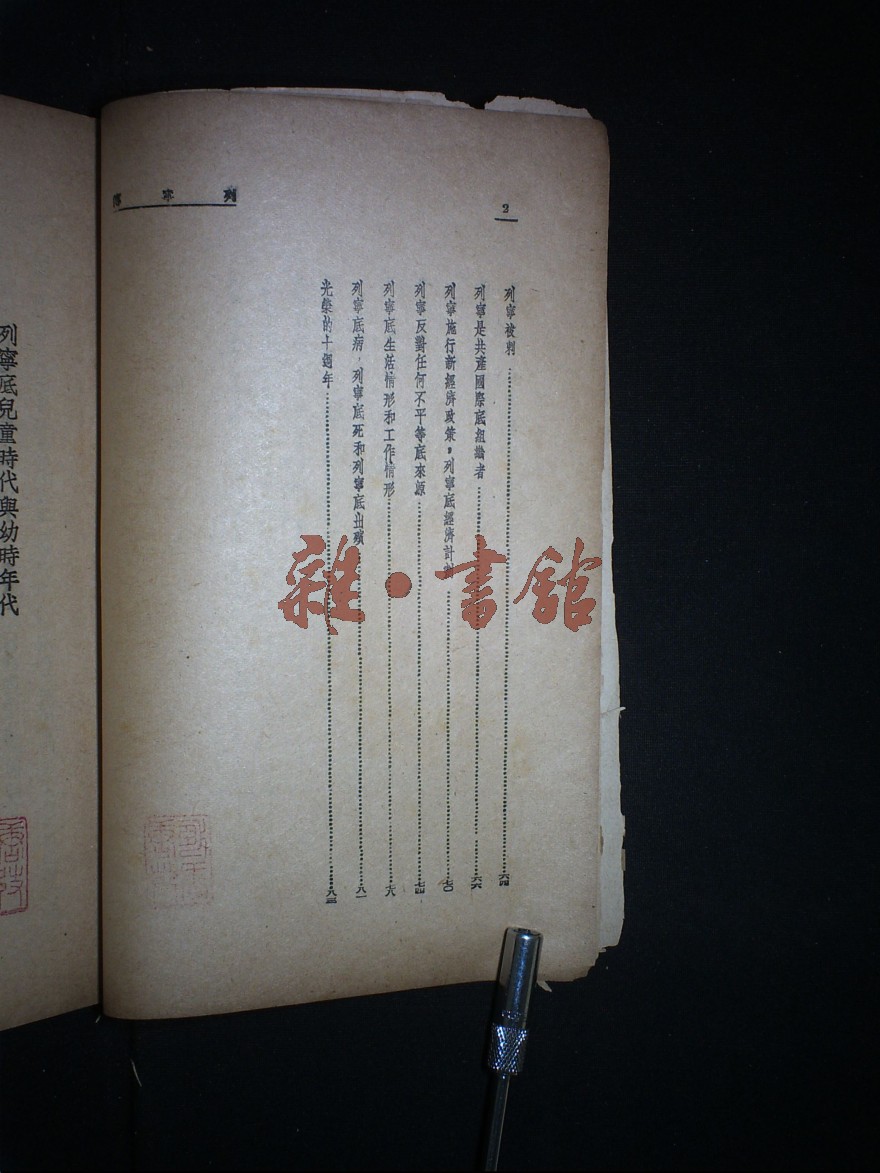 列寧傳
2
列寧被刺……六四
列寧是共產國際底組織者……六六
列寧施行新經濟政策,列寧底經濟計劃……七〇
列寧反對任何不平等底來源……七四
列寧底生活情形和工作情形……七八
列寧底病,列寧底死和列寧底出殯……八一
光榮的十週年……八三
列寧底兒童時代與幼時年代
雜·書館